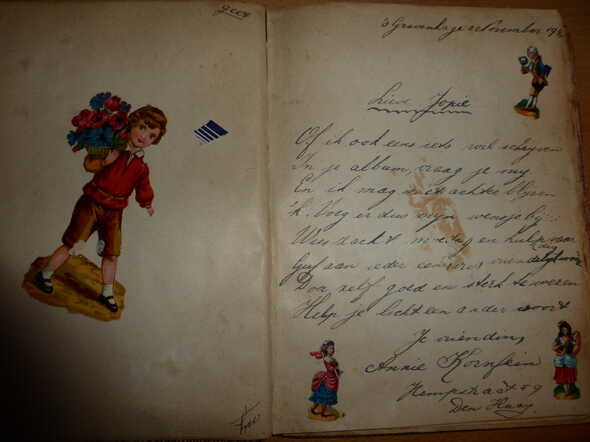 's Gravenhage 2 November 19
Lieve Jopie
Of ik ook eens iets wil schrijven
In je album, vraag je mij
En ik mag niet achter blijven
'k. Voeg er dus mijn wensje bij:
Wees zacht moedig en hulpvaar
dig
Geef aan ieder eens vriendelijk
Door zelf goed en sterk te wezen
Help je licht een ander voort
Je vriendin,
Annie Kornfein
Hempstraat 59
Den Haag